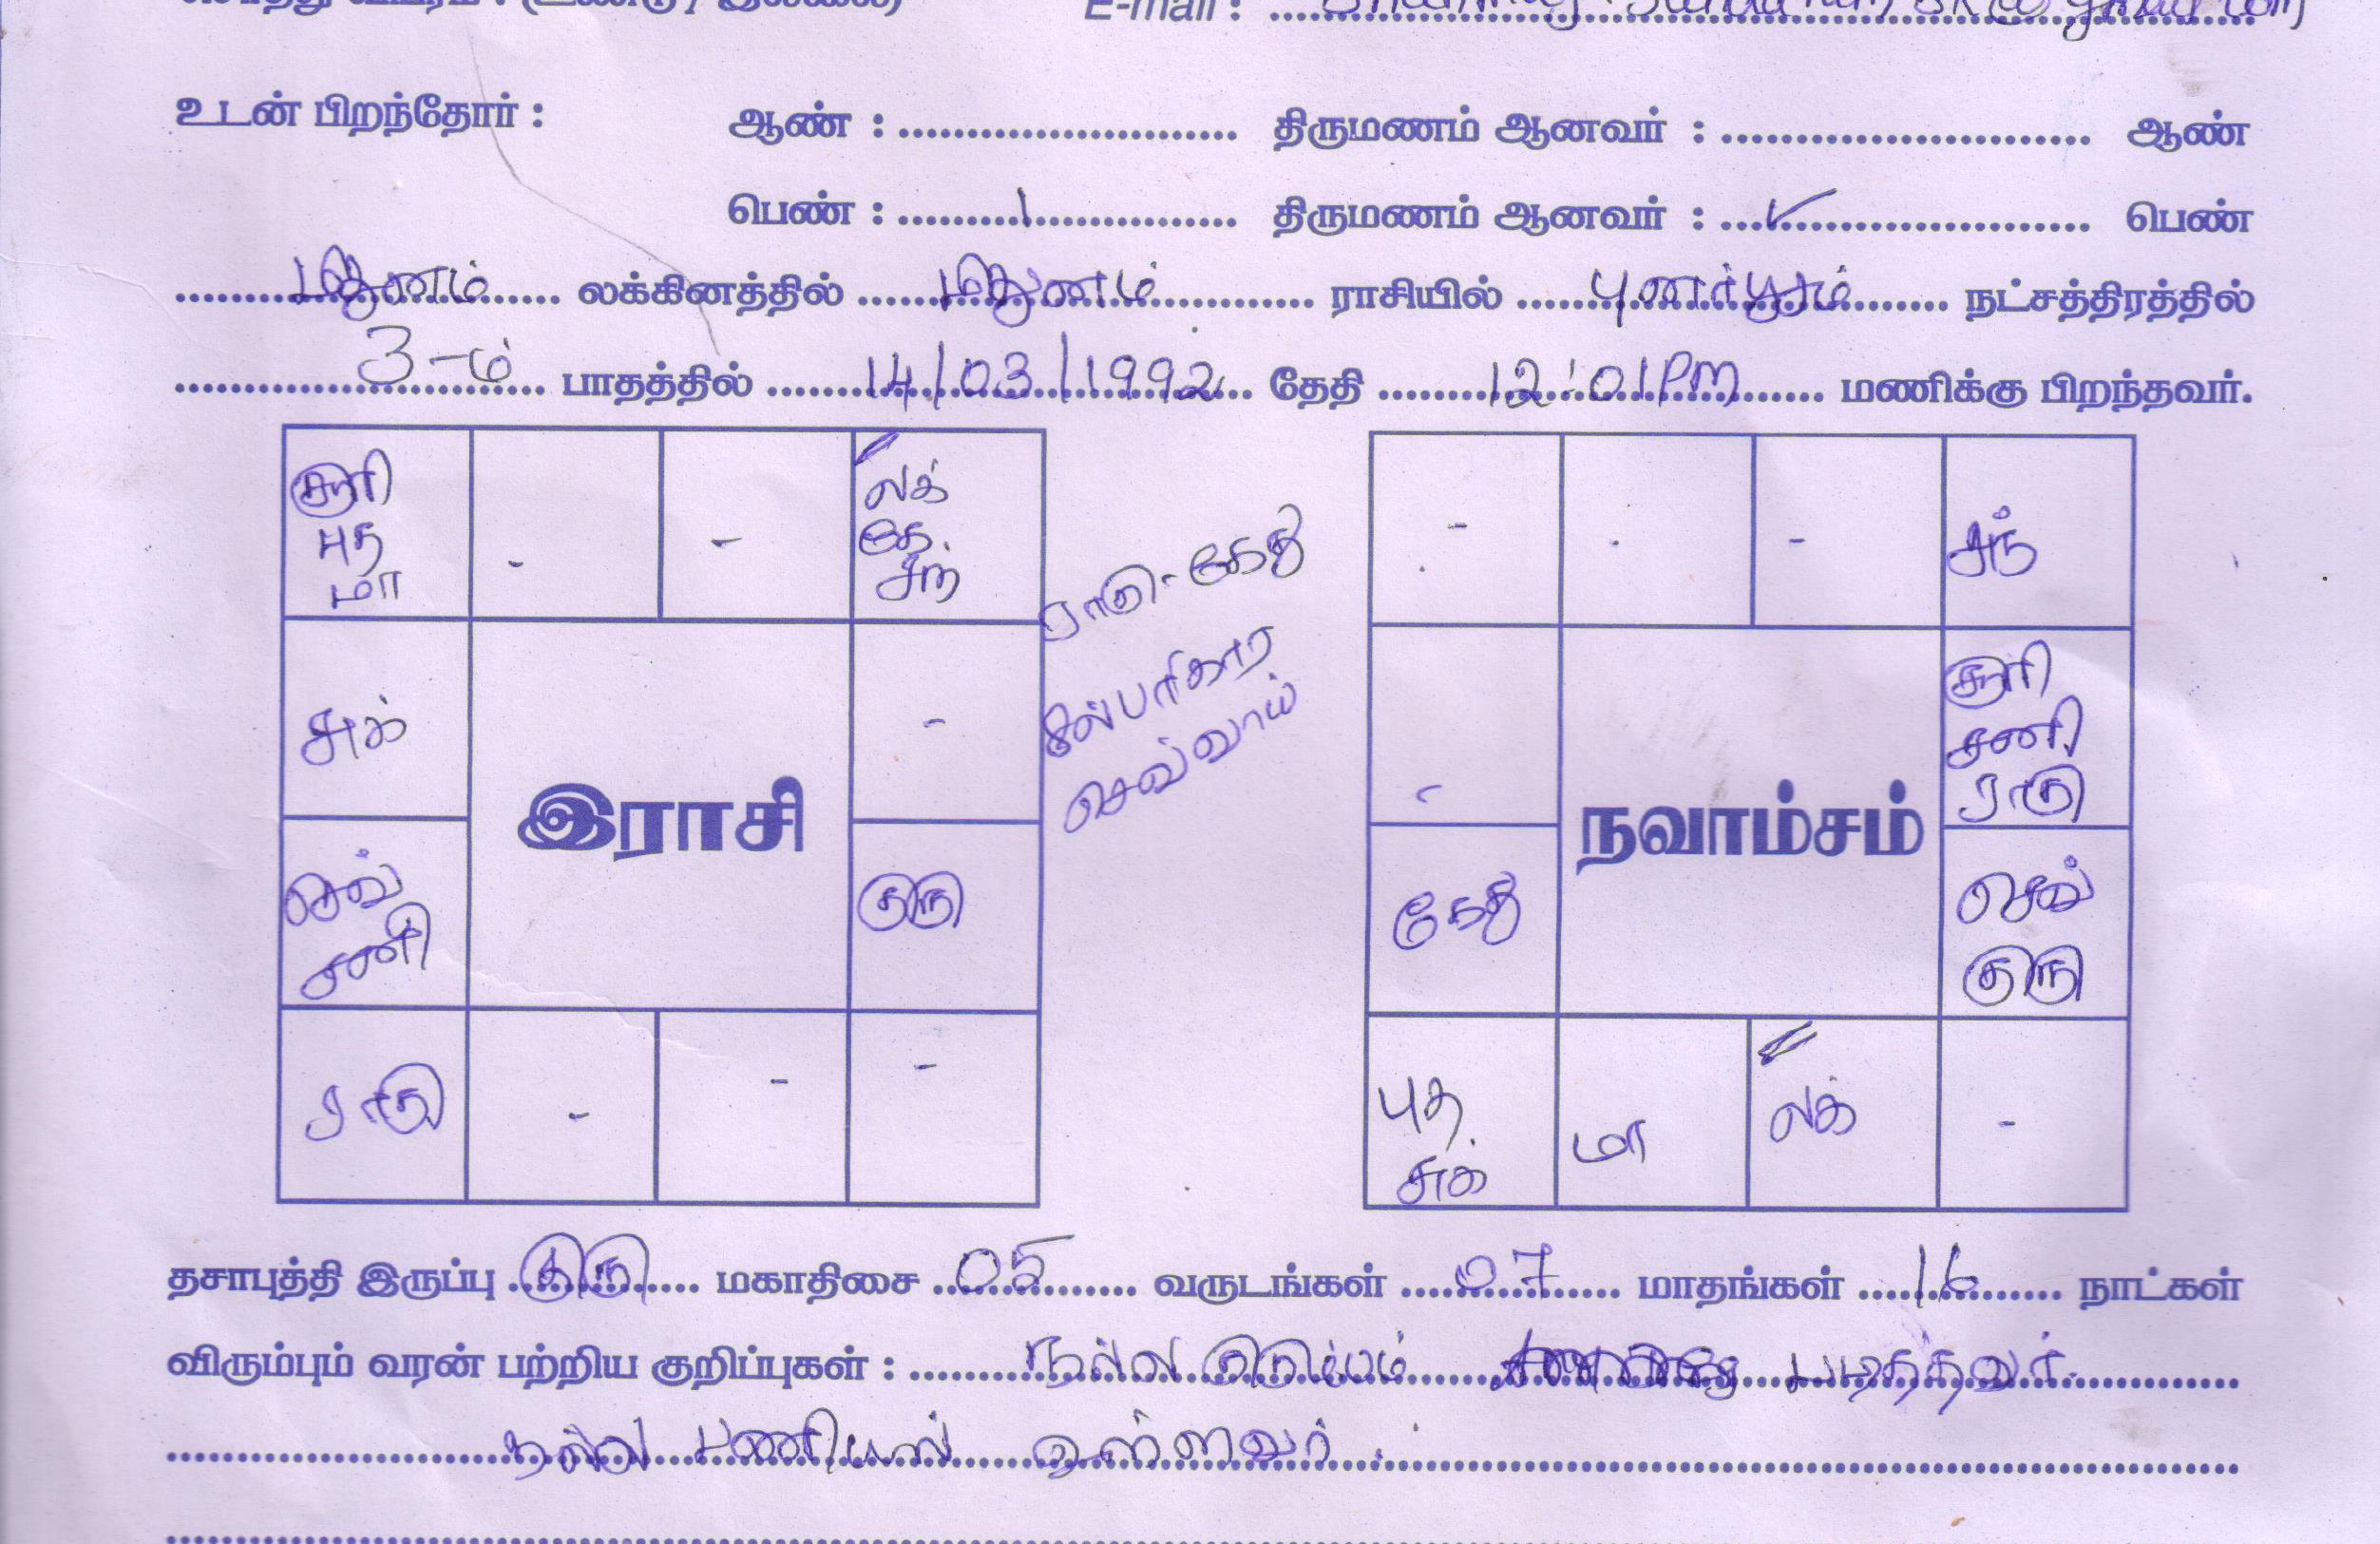 E-mail :
உடன் பிறந்தோர் : ஆண் : திருமணம் ஆனவர் : ஆண்
பெண் : 1 திருமணம் ஆனவர் : ✓ பெண்
மிதுனம் லக்கினத்தில் மிதுனம் ராசியில் புனர்பூசம் நட்சத்திரத்தில்
3-ம் பாதத்தில் 14/03/1992 தேதி 12:01PM மணிக்கு பிறந்தவர்.
சூரி
புத
மா
-
-
லக்
கே
சந்
சுக்
-
செவ்
சனி
குரு
ராகு
-
-
-
இராசி
ராகு-கேது
பரிகார
செவ்வாய்
-
-
-
சந்
-
சூரி
சனி
ராகு
கேது
செவ்
குரு
புத
சுக்
மா
லக்
-
நவாம்சம்
தசாபுத்தி இருப்பு குரு மகாதிசை 05 வருடங்கள் 07 மாதங்கள் 16 நாட்கள்
விரும்பும் வரன் பற்றிய குறிப்புகள் : நல்ல குடும்பம் படித்தவர்.
நல்ல பணியில் உள்ளவர்.